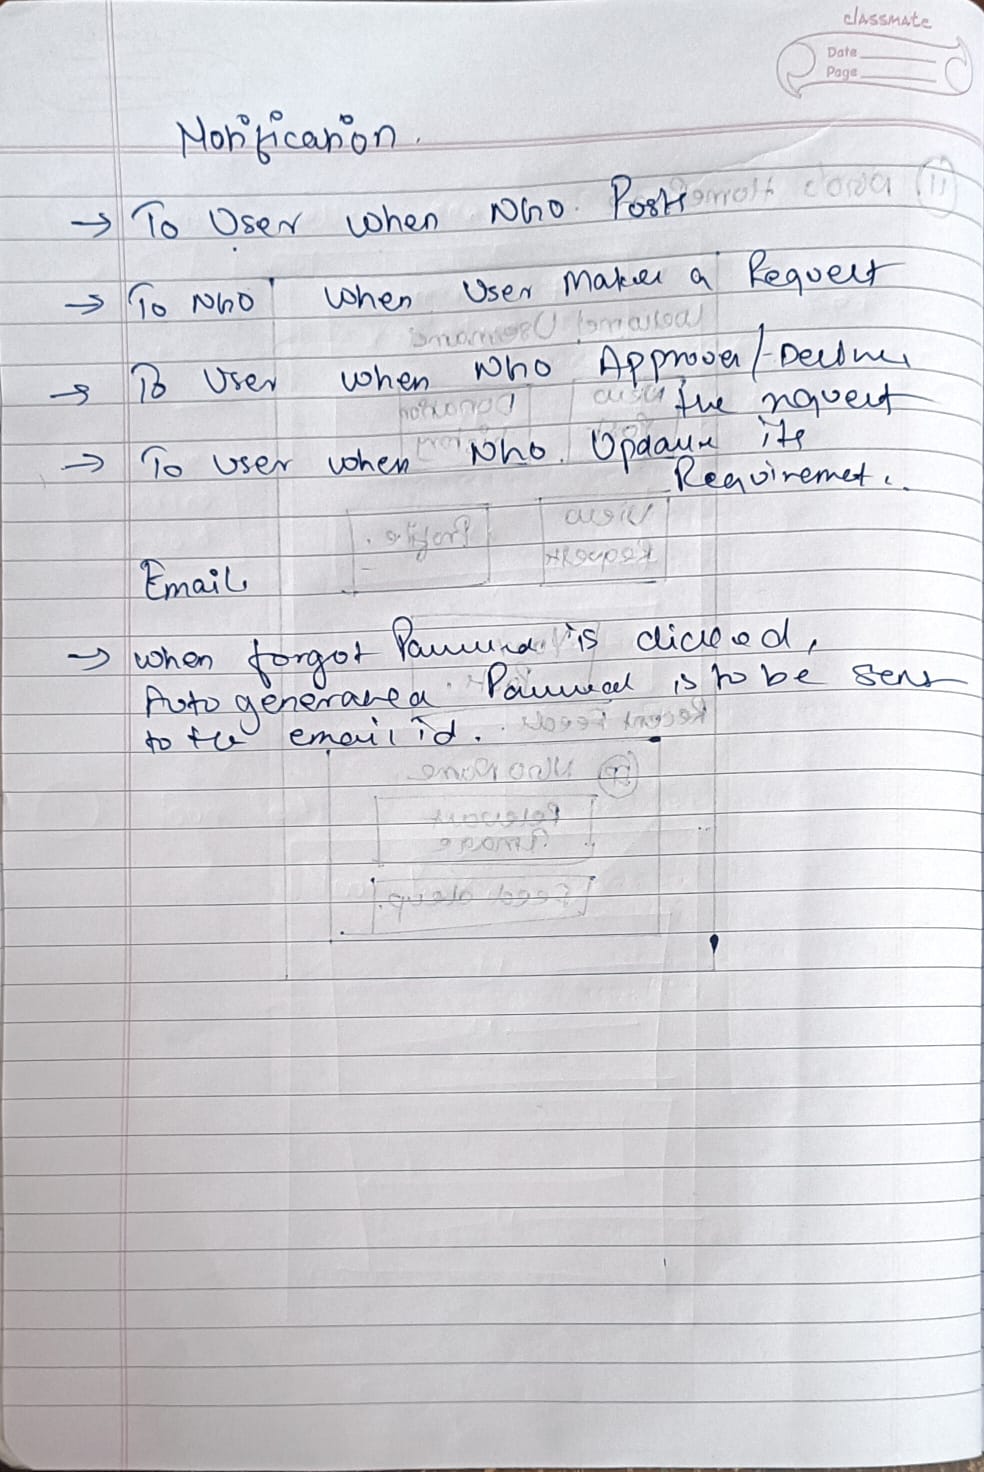 classmate
Date
Page
Notification.
→ To User when NGO Posts
→ To NGO when User Makes a Request
→ To User when NGO Approves/Declines
the request
→ To User when NGO. Update its
Requiremet.
Email
→ when forgot Password is clicked,
Auto generated Password is to be sent
to the email id.